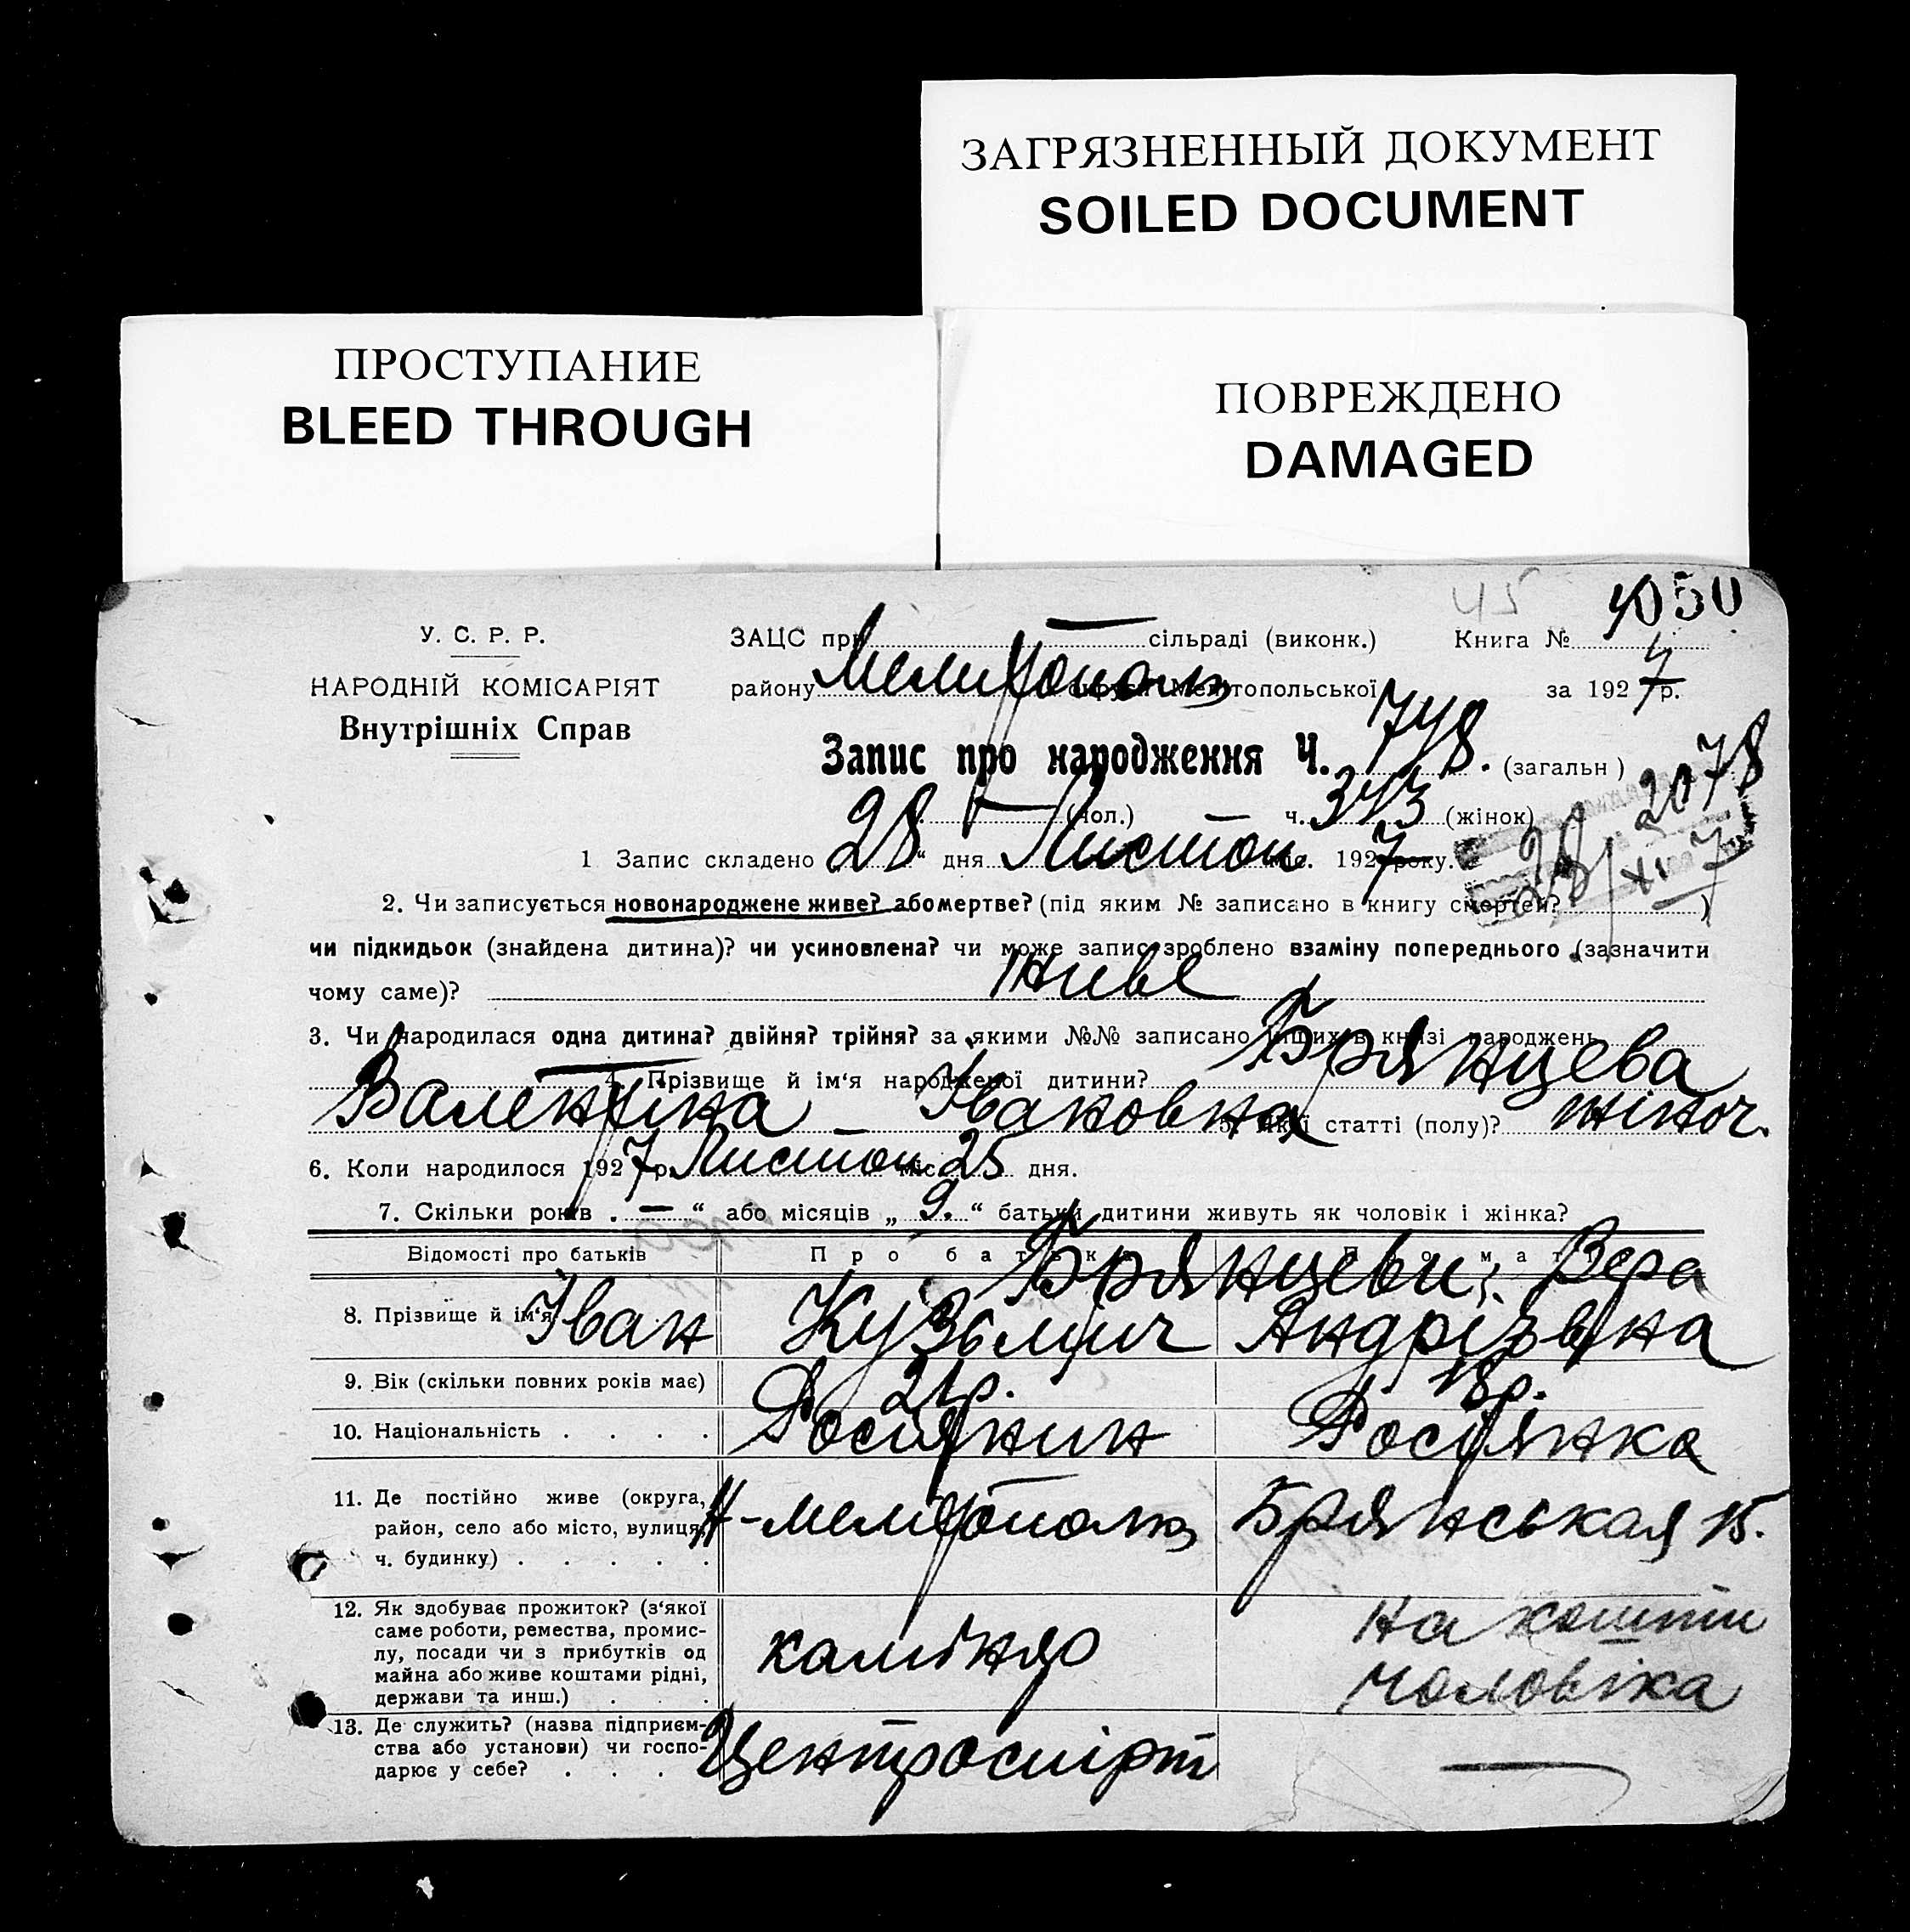 ЗАГРЯЗНЕННЫЙ ДОКУМЕНТ
SOILED DOCUMENT
ПРОСТУПАНИЕ
BLEED THROUGH
ПОВРЕЖДЕНО
DAMAGED
45 4050
У. С. Р. Р.
ЗАЦС при — сільраді (виконк.) Книга № 4
НАРОДНІЙ КОМІСАРІЯТ
Внутрішніх Справ
району Мелитополь округи Мелітопольської за 1927 р.
Запис про народження Ч. 748. (загальн)
2078
— (чол.) ч. 373 (жінок)
28/XI 7
1 Запис складено 28“ дня Листоп міс. 1927 року.
2. Чи записується новонароджене живе? або мертве? (під яким № записано в книгу смертей? )
чи підкидьок (знайдена дитина)? чи усиновлена? чи може запис зроблено взаміну попереднього (зазначити
чому саме)? Живе
3. Чи народилася одна дитина? двійня? трійня? за якими №№ записано інших в книзі народжень
— 4. Прізвище й ім'я народженої дитини? Брянцева
Валентина Івановна 5. Якої статті (полу)? жіноч.
6. Коли народилося 1927 р. Листоп міс. 25 дня.
7. Скільки років . — “ або місяців „ 9. “ батьки дитини живуть як чоловік і жінка?
Відомості про батьків Про батька Про матір
Брянцеви; Вера
8. Прізвище й ім'я Іван Кузьмич Андріївна
9. Вік (скільки повних років має) 21 р. 18 р.
10. Національність . . . . Росіянин Росіянка
11. Де постійно живе (округа,
район, село або місто, вулиця, Н-Мелітополь Брянськая 15.
ч. будинку) . . . . .
12. Як здобуває прожиток? (з'якої
саме роботи, ремества, промис-
лу, посади чи з прибутків од
майна або живе коштами рідні,
держави та инш.) . . .
каміняр на кошти
чоловіка
13. Де служить? (назва підприєм-
ства або установи) чи госпо-
дарює у себе? . . . Центроспірт —